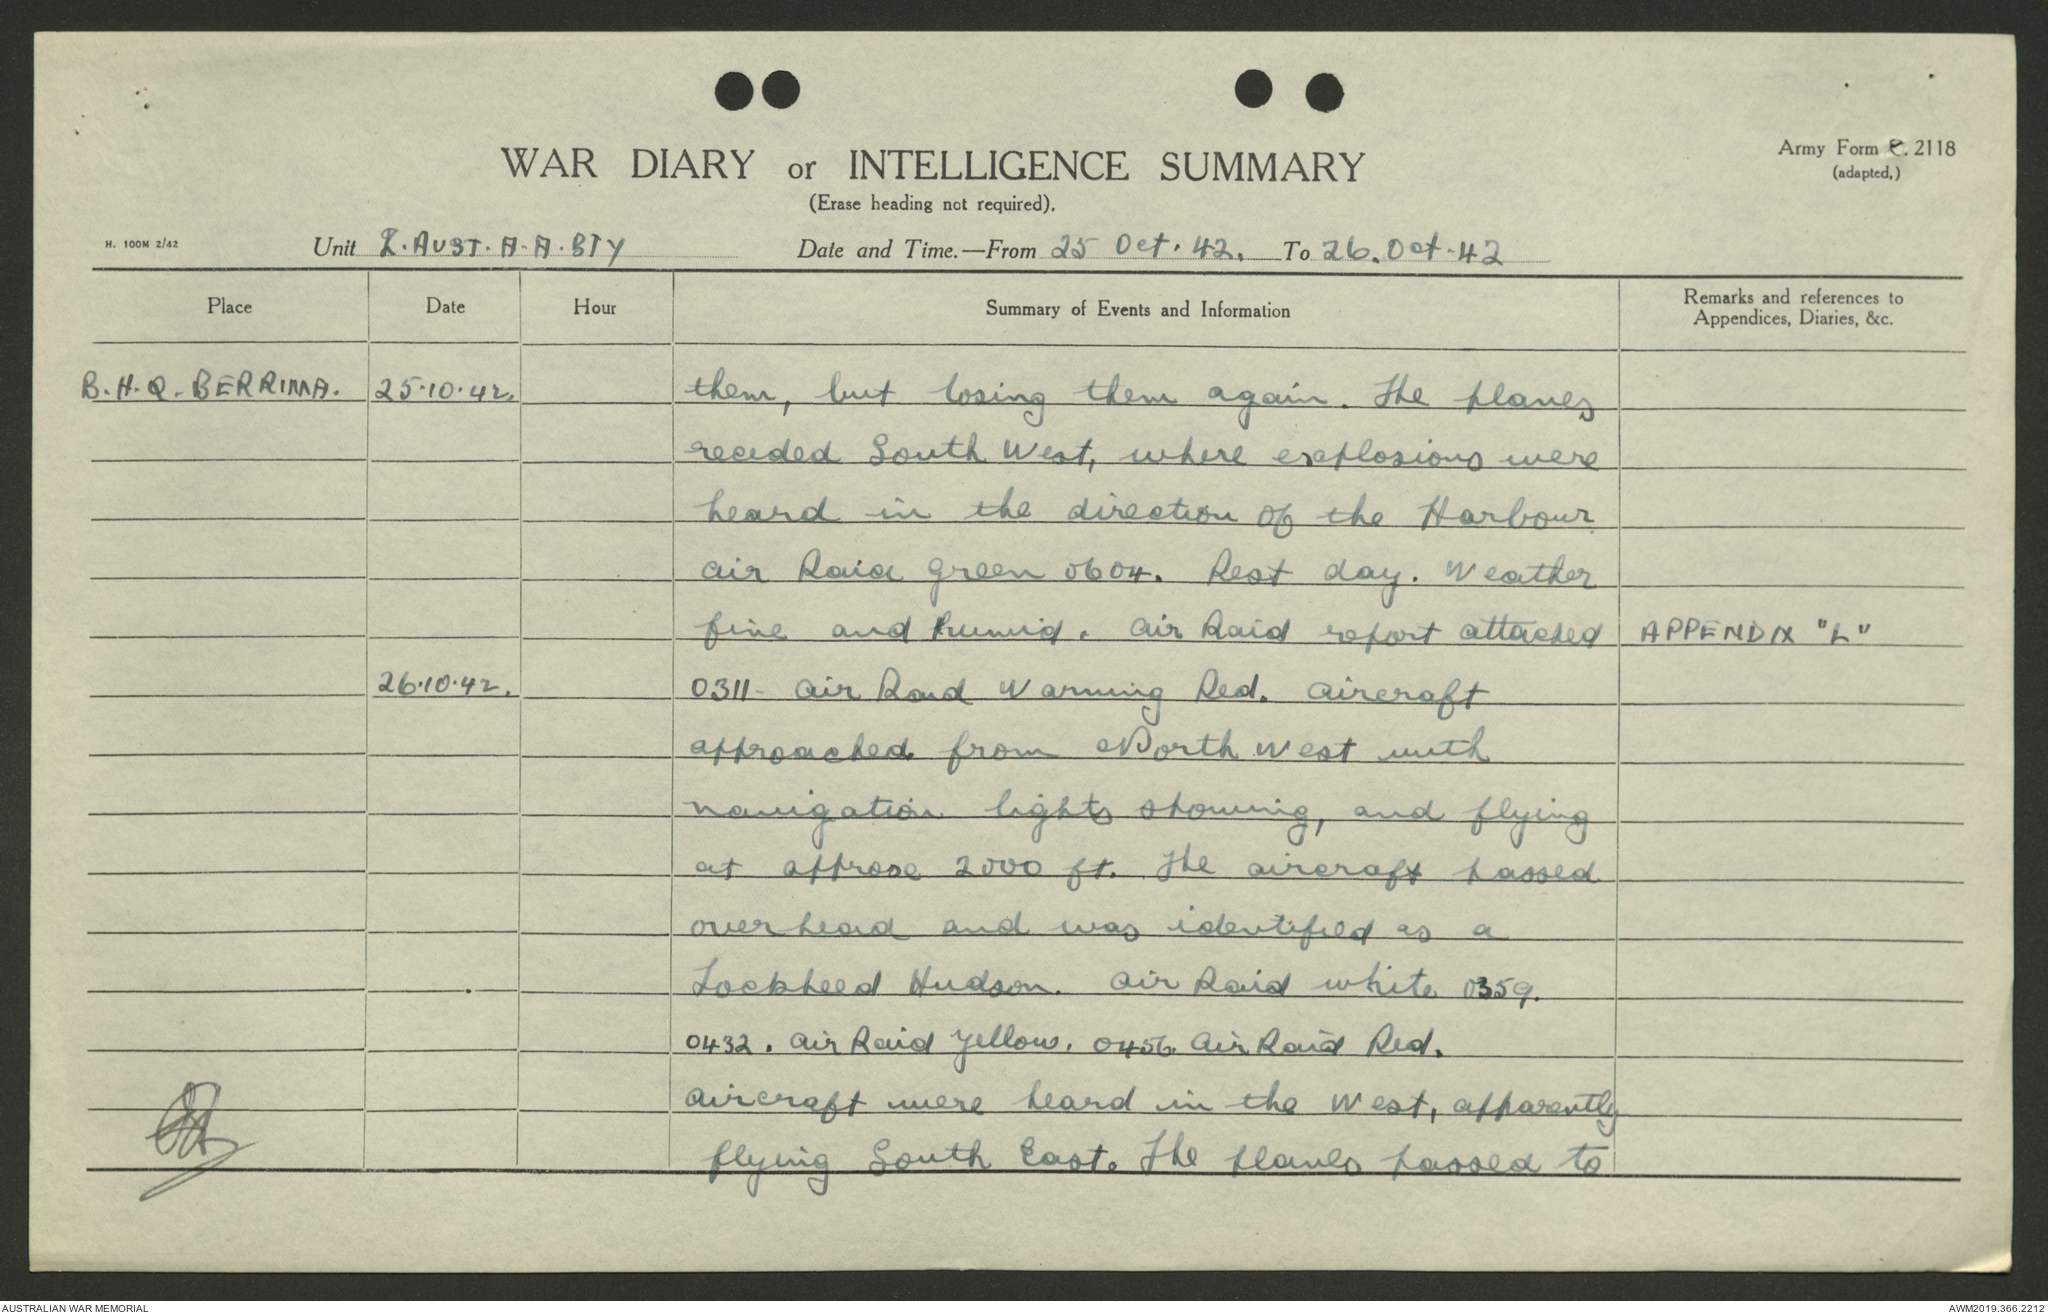 WAR DIARY or INTELLIGENCE SUMMARY
(Erase heading not required).
Army Form C. 2118
(adapted,)
H. 100M 2/42
Unit 2. AUST. A-A. BTY
Date and Time.—From 25 Oct. 42. To 26. Oct. 42
Place Date Hour Summary of Events and Information Remarks and references to
Appendices, Diaries, &c.
B.H.Q. BERRIMA. 25.10.42. them, but losing them again. The planes
receded South West, where explosions were
heard in the direction of the Harbour
air Raid green 0604. Rest day. Weather
fine and humid. Air Raid report attached APPENDIX "L"
26.10.42. 0311- Air Raid Warning Red. Aircraft
approached from North West with
navigation lights showing, and flying
at approx 2000 ft. The aircraft passed
overhead and was identified as a
Lockheed Hudson. Air Raid white 0359.
0432. Air Raid Yellow. 0456. Air Raid Red.
Aircraft were heard in the West, apparently
flying South East. The planes passed to
AUSTRALIAN WAR MEMORIAL
AWM2019.366.2212